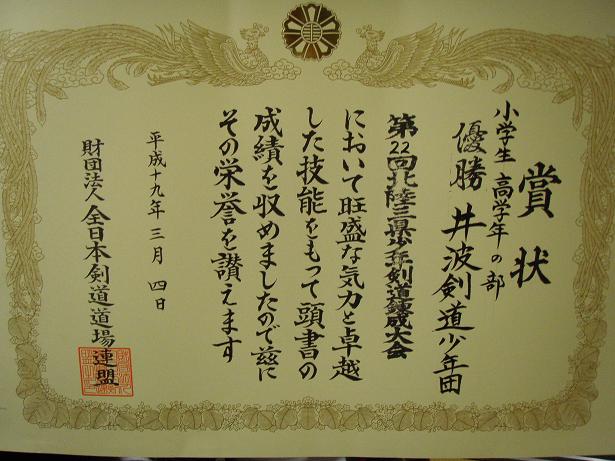 賞状
小学生 高学年の部
優勝 井波剣道少年団
第22回北陸三県少年剣道錬成大会
において旺盛な気力と卓越
した技能をもって頭書の
成績を収めましたので茲に
その栄誉を讃えます
平成十九年三月四日
財団法人全日本剣道道場連盟